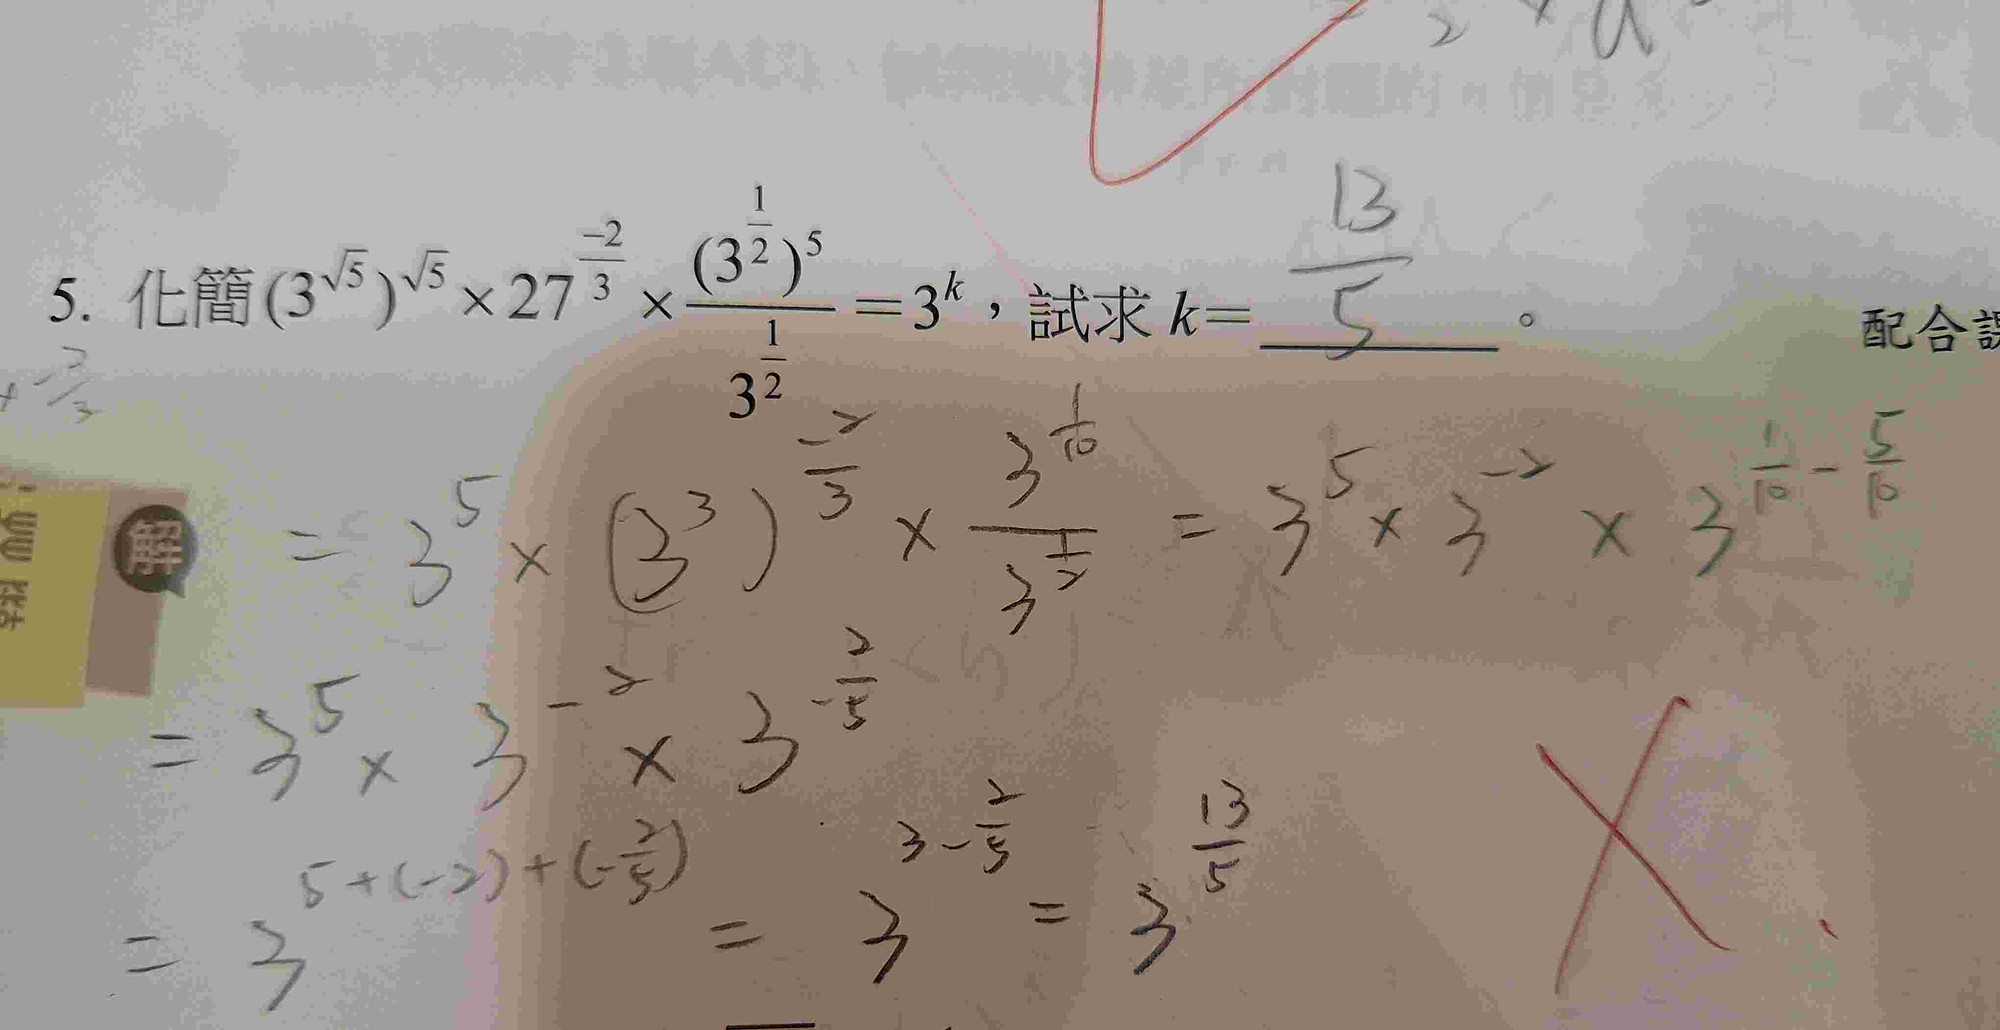 2 × a
5. 化簡(3^√5)^√5 × 27^(-2/3) × (3^(1/2))^5 / 3^(1/2) = 3^k，試求 k= 13/5 。
配合
= 3^5 × (3^3)^(-2/3) × 3^(1/10) / 3^(1/2) = 3^5 × 3^-2 × 3^(1/10 - 5/10)
= 3^5 × 3^-2 × 3^(-2/5)
= 3^(5+(-2)+(-2/5)) = 3^(3-2/5) = 3^(13/5)